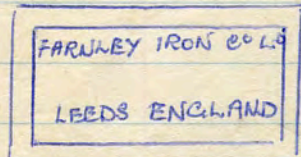 FARNLEY IRON Co LD
LEEDS ENGLAND